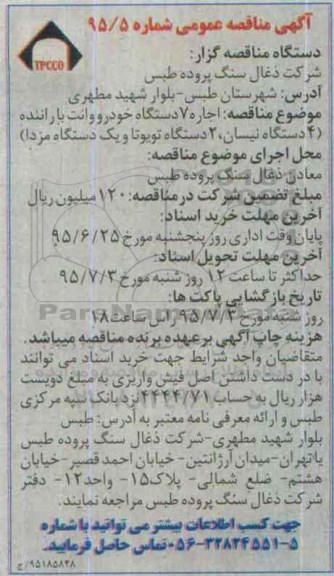 آگهی مناقصه عمومی شماره ۹۵/۵
TPCCO
دستگاه مناقصه گزار:
شرکت ذغال سنگ پروده طبس
آدرس: شهرستان طبس-بلوار شهید مطهری
موضوع مناقصه: اجاره ۷ دستگاه خودرو وانت بار اننده
(۴ دستگاه نیسان، ۲ دستگاه تویوتا و یک دستگاه مزدا)
محل اجرای موضوع مناقصه:
معادن ذغال سنگ پروده طبس
مبلغ تضمین شرکت در مناقصه: ۱۲۰ میلیون ریال
آخرین مهلت خرید اسناد:
پایان وقت اداری روز پنجشنبه مورخ ۹۵/۶/۲۵
آخرین مهلت تحویل اسناد:
حداکثر تا ساعت ۱۲ روز شنبه مورخ ۹۵/۷/۳
تاریخ بازگشایی پاکت ها:
روز شنبه مورخ ۹۵/۷/۳ راس ساعت ۱۸
هزینه چاپ آگهی بر عهده برنده مناقصه میباشد.
متقاضیان واجد شرایط جهت خرید اسناد می توانند
با در دست داشتن اصل فیش واریزی به مبلغ دویست
هزار ریال به حساب ۲۴۴۴/۷۱ نزد بانک سپه مرکزی
طبس و ارائه معرفی نامه معتبر به آدرس: طبس
بلوار شهید مطهری-شرکت ذغال سنگ پروده طبس
یا تهران-میدان آرژانتین-خیابان احمد قصیر-خیابان
هشتم- ضلع شمالی- پلاک ۱۵- واحد ۱۲- دفتر
شرکت ذغال سنگ پروده طبس مراجعه نمایند.
جهت کسب اطلاعات بیشتر می توانید با شماره
۵-۳۲۸۲۴۵۵۱-۰۵۶ تماس حاصل فرمایید.
۹۵۱۸۵۸۲۸/ج